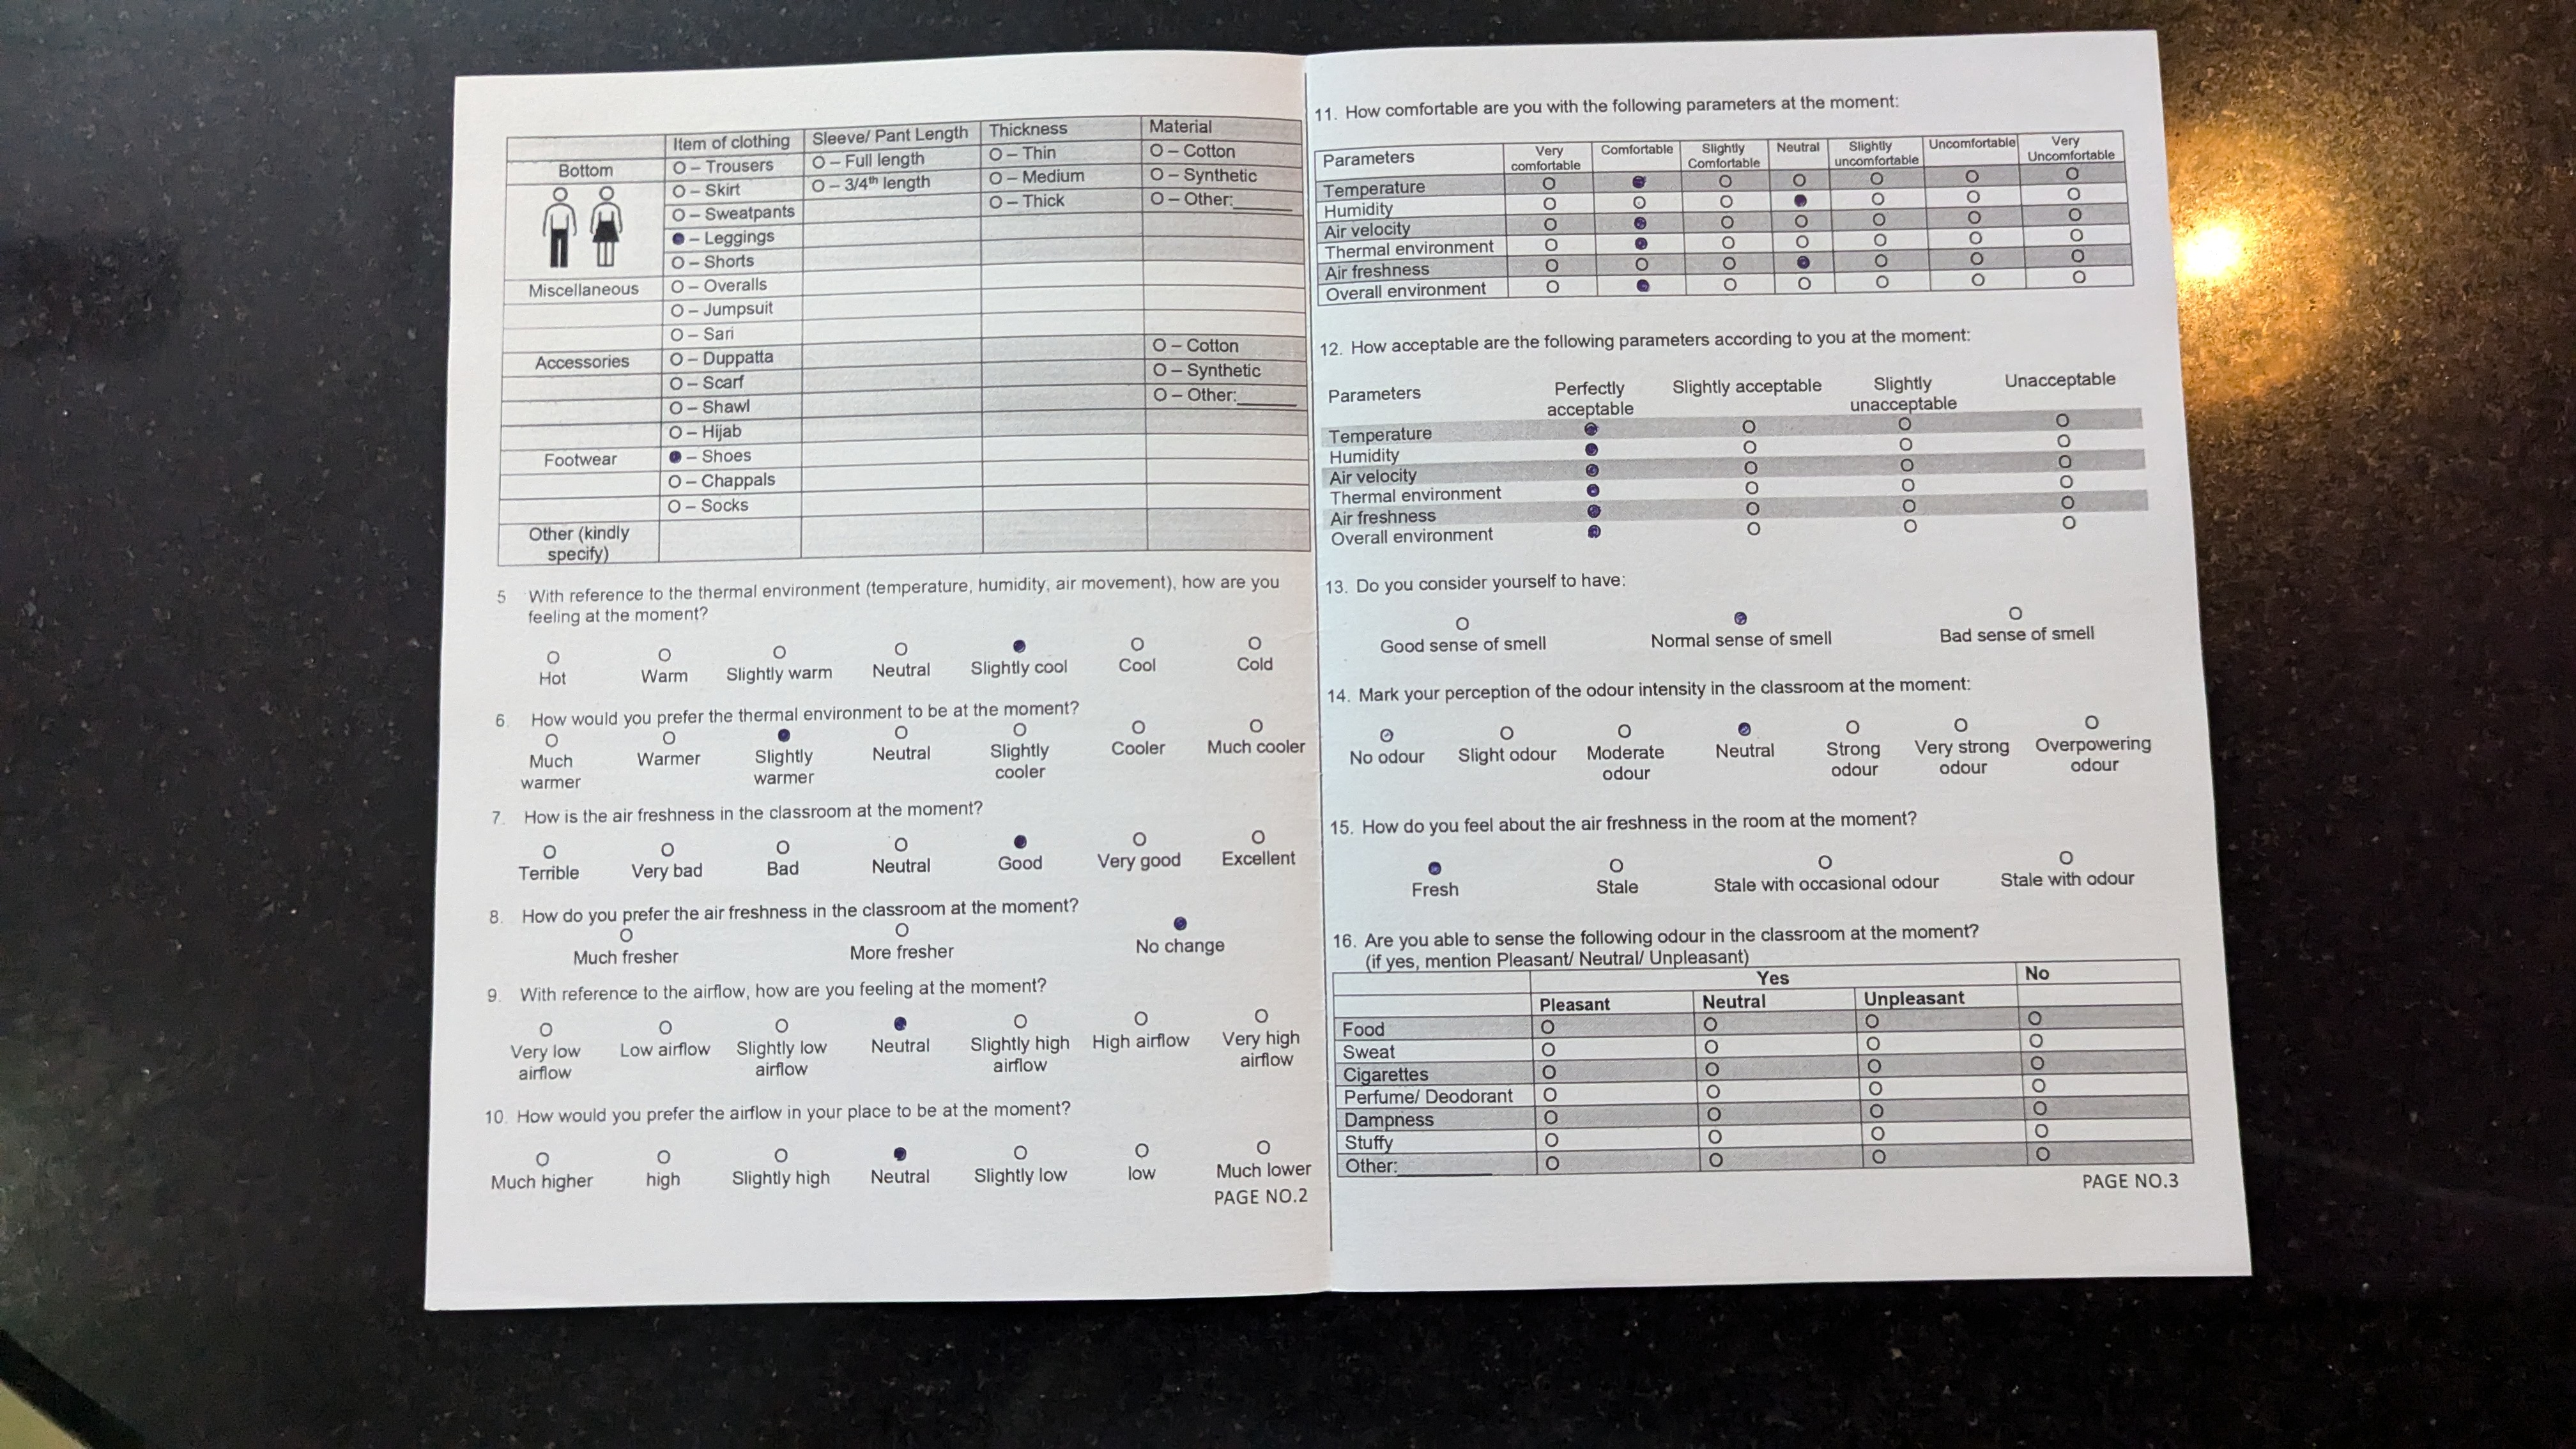 Item of clothing Sleeve/ Pant Length Thickness Material
Bottom O – Trousers O – Full length O – Thin O – Cotton
O – Skirt O – 3/4th length O – Medium O – Synthetic
O – Sweatpants O – Thick O – Other:______
● – Leggings
O – Shorts
Miscellaneous O – Overalls
O – Jumpsuit
O – Sari
Accessories O – Duppatta O – Cotton
O – Scarf O – Synthetic
O – Shawl O – Other:______
O – Hijab
Footwear ● – Shoes
O – Chappals
O – Socks
Other (kindly
specify)
5 With reference to the thermal environment (temperature, humidity, air movement), how are you
feeling at the moment?
O O O O ● O O
Hot Warm Slightly warm Neutral Slightly cool Cool Cold
6. How would you prefer the thermal environment to be at the moment?
O O ● O O O O
Much Warmer Slightly Neutral Slightly Cooler Much cooler
warmer warmer cooler
7. How is the air freshness in the classroom at the moment?
O O O O ● O O
Terrible Very bad Bad Neutral Good Very good Excellent
8. How do you prefer the air freshness in the classroom at the moment?
O O ●
Much fresher More fresher No change
9. With reference to the airflow, how are you feeling at the moment?
O O O ● O O O
Very low Low airflow Slightly low Neutral Slightly high High airflow Very high
airflow airflow airflow airflow
10. How would you prefer the airflow in your place to be at the moment?
O O O ● O O O
Much higher high Slightly high Neutral Slightly low low Much lower
PAGE NO.2
11. How comfortable are you with the following parameters at the moment:
Parameters Very Comfortable Slightly Neutral Slightly Uncomfortable Very
comfortable Comfortable uncomfortable Uncomfortable
Temperature O ● O O O O O
Humidity O O O ● O O O
Air velocity O ● O O O O O
Thermal environment O ● O O O O O
Air freshness O O O ● O O O
Overall environment O ● O O O O O
12. How acceptable are the following parameters according to you at the moment:
Parameters Perfectly Slightly acceptable Slightly Unacceptable
acceptable unacceptable
Temperature ● O O O
Humidity ● O O O
Air velocity ● O O O
Thermal environment ● O O O
Air freshness ● O O O
Overall environment ● O O O
13. Do you consider yourself to have:
O ● O
Good sense of smell Normal sense of smell Bad sense of smell
14. Mark your perception of the odour intensity in the classroom at the moment:
O O O ● O O O
No odour Slight odour Moderate Neutral Strong Very strong Overpowering
odour odour odour odour
15. How do you feel about the air freshness in the room at the moment?
● O O O
Fresh Stale Stale with occasional odour Stale with odour
16. Are you able to sense the following odour in the classroom at the moment?
(if yes, mention Pleasant/ Neutral/ Unpleasant)
Yes No
Pleasant Neutral Unpleasant
Food O O O O
Sweat O O O O
Cigarettes O O O O
Perfume/ Deodorant O O O O
Dampness O O O O
Stuffy O O O O
Other:__________ O O O O
PAGE NO.3